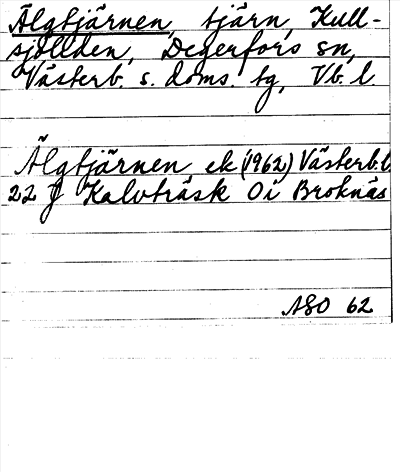 Älgtjärnen, tjärn, Kull-
sjöliden, Degerfors sn,
Västerb. s. doms. tg, Vb. l.
Älgtjärnen ek (1962) Västerb. l
22 J Kalvträsk 0i Broknäs
ASO 62